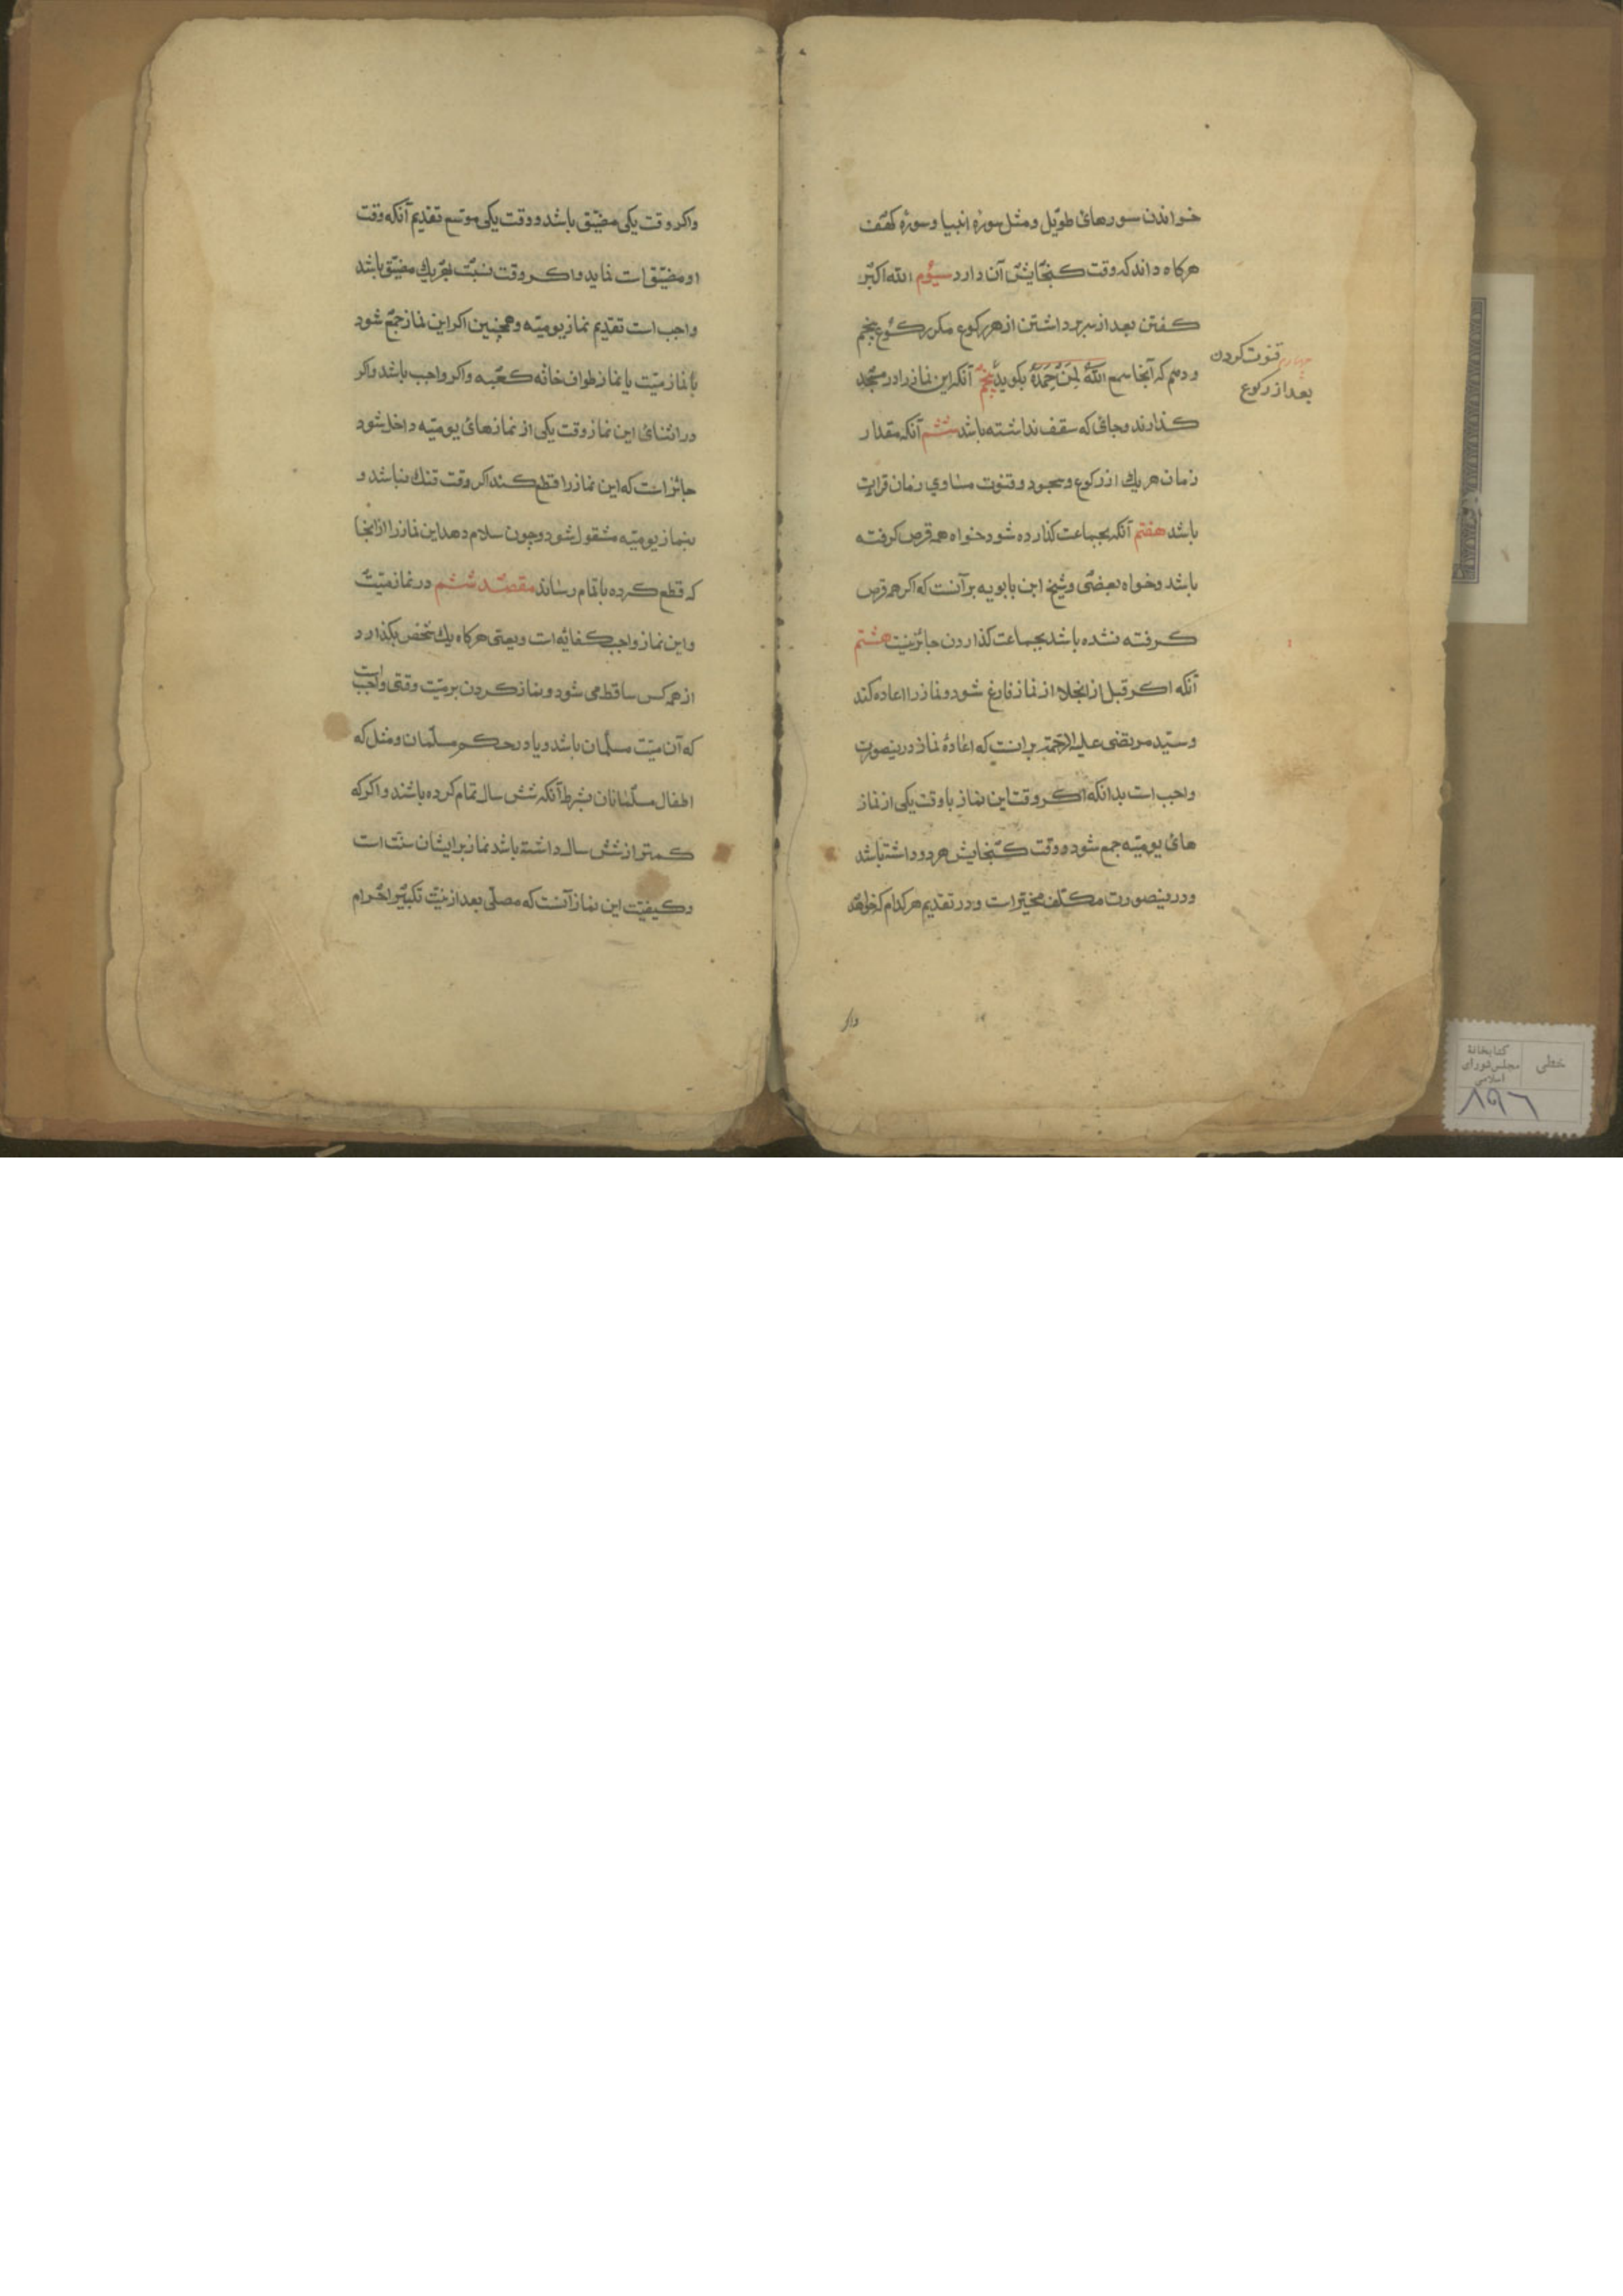 خواندن سورهای طویل و مثل سورهٔ انبیا و سورهٔ کهف
هرکاه داند که وقت کنجایش آن دارد سیوم الله اکبر
کفتن بعد از سر برداشتن از هر رکوع مکرر رکوع پنجم
و دهم که آنجا سمع الله لمن حمده بکوید پنجم آنکه این نماز را در مسجد
چهارم قنوت کردن
بعد از رکوع
کذارند و جائی که سقف نداشته باشد ششم آنکه مقدار
زمان هر یك از رکوع و سجود و قنوت مساوی زمان قرات
باشد هفتم آنکه بجماعت کذارده شود خواه همه قرص کرفته
باشد و خواه بعضی و شیخ ابن بابویه بر آنست که اکر همه قرص
کرفته نشده باشد بجماعت کذاردن جائز نیست هشتم
آنکه اکر قبل از انجلا از نماز فارغ شود و نماز را اعاده کند
و سید مرتضی علیه الرحمة برانست که اعادهٔ نماز درینصورت
واجب است بدانکه اکر وقت این نماز با وقت یکی از نماز
های یومیّه جمع شود و وقت کنجایش هر دو داشته باشد
و درینصورت مکلف مخیر است و در تقدیم هر کدام که خواهد
واکر
واکر وقت یکی مضیّق باشد و وقت یکی موسع تقدیم آنکه وقت
او مضیّق است نماید و اکر وقت نسبت بهر یك مضیّق باشد
واجب است تقدیم نماز یومیّه و همچنین اکر این نماز جمع شود
با نماز میّت یا نماز طواف خانه کعبه و اکر واجب باشد و اکر
در اثنای این نماز وقت یکی از نمازهای یومیّه داخل شود
جائز است که این نماز را قطع کند اکر وقت تنك نباشد و
بنماز یومیّه مشقول شود و چون سلام دهد این نماز را از انجا
که قطع کرده باتمام رساند مقصد ششم در نماز میّت
و این نماز واجب کفائیه است و یعنی هرکاه یك شخص بکذارد
از همه کس ساقط می شود و نماز کردن بر میّت وقتی واجب است
که آن میّت مسلمان باشد و یا در حکم مسلمان و مثل که
اطفال مسلمانان بشرط آنکه شش سال تمام کرده باشند و اکر که
کمتر از شش سال داشته باشد نماز بر ایشان سنت است
و کیفیّت این نماز آنست که مصلّی بعد از نیّت تکبیر احرام
کتابخانهٔ
مجلس شورای
اسلامی
خطی
۸۹۶